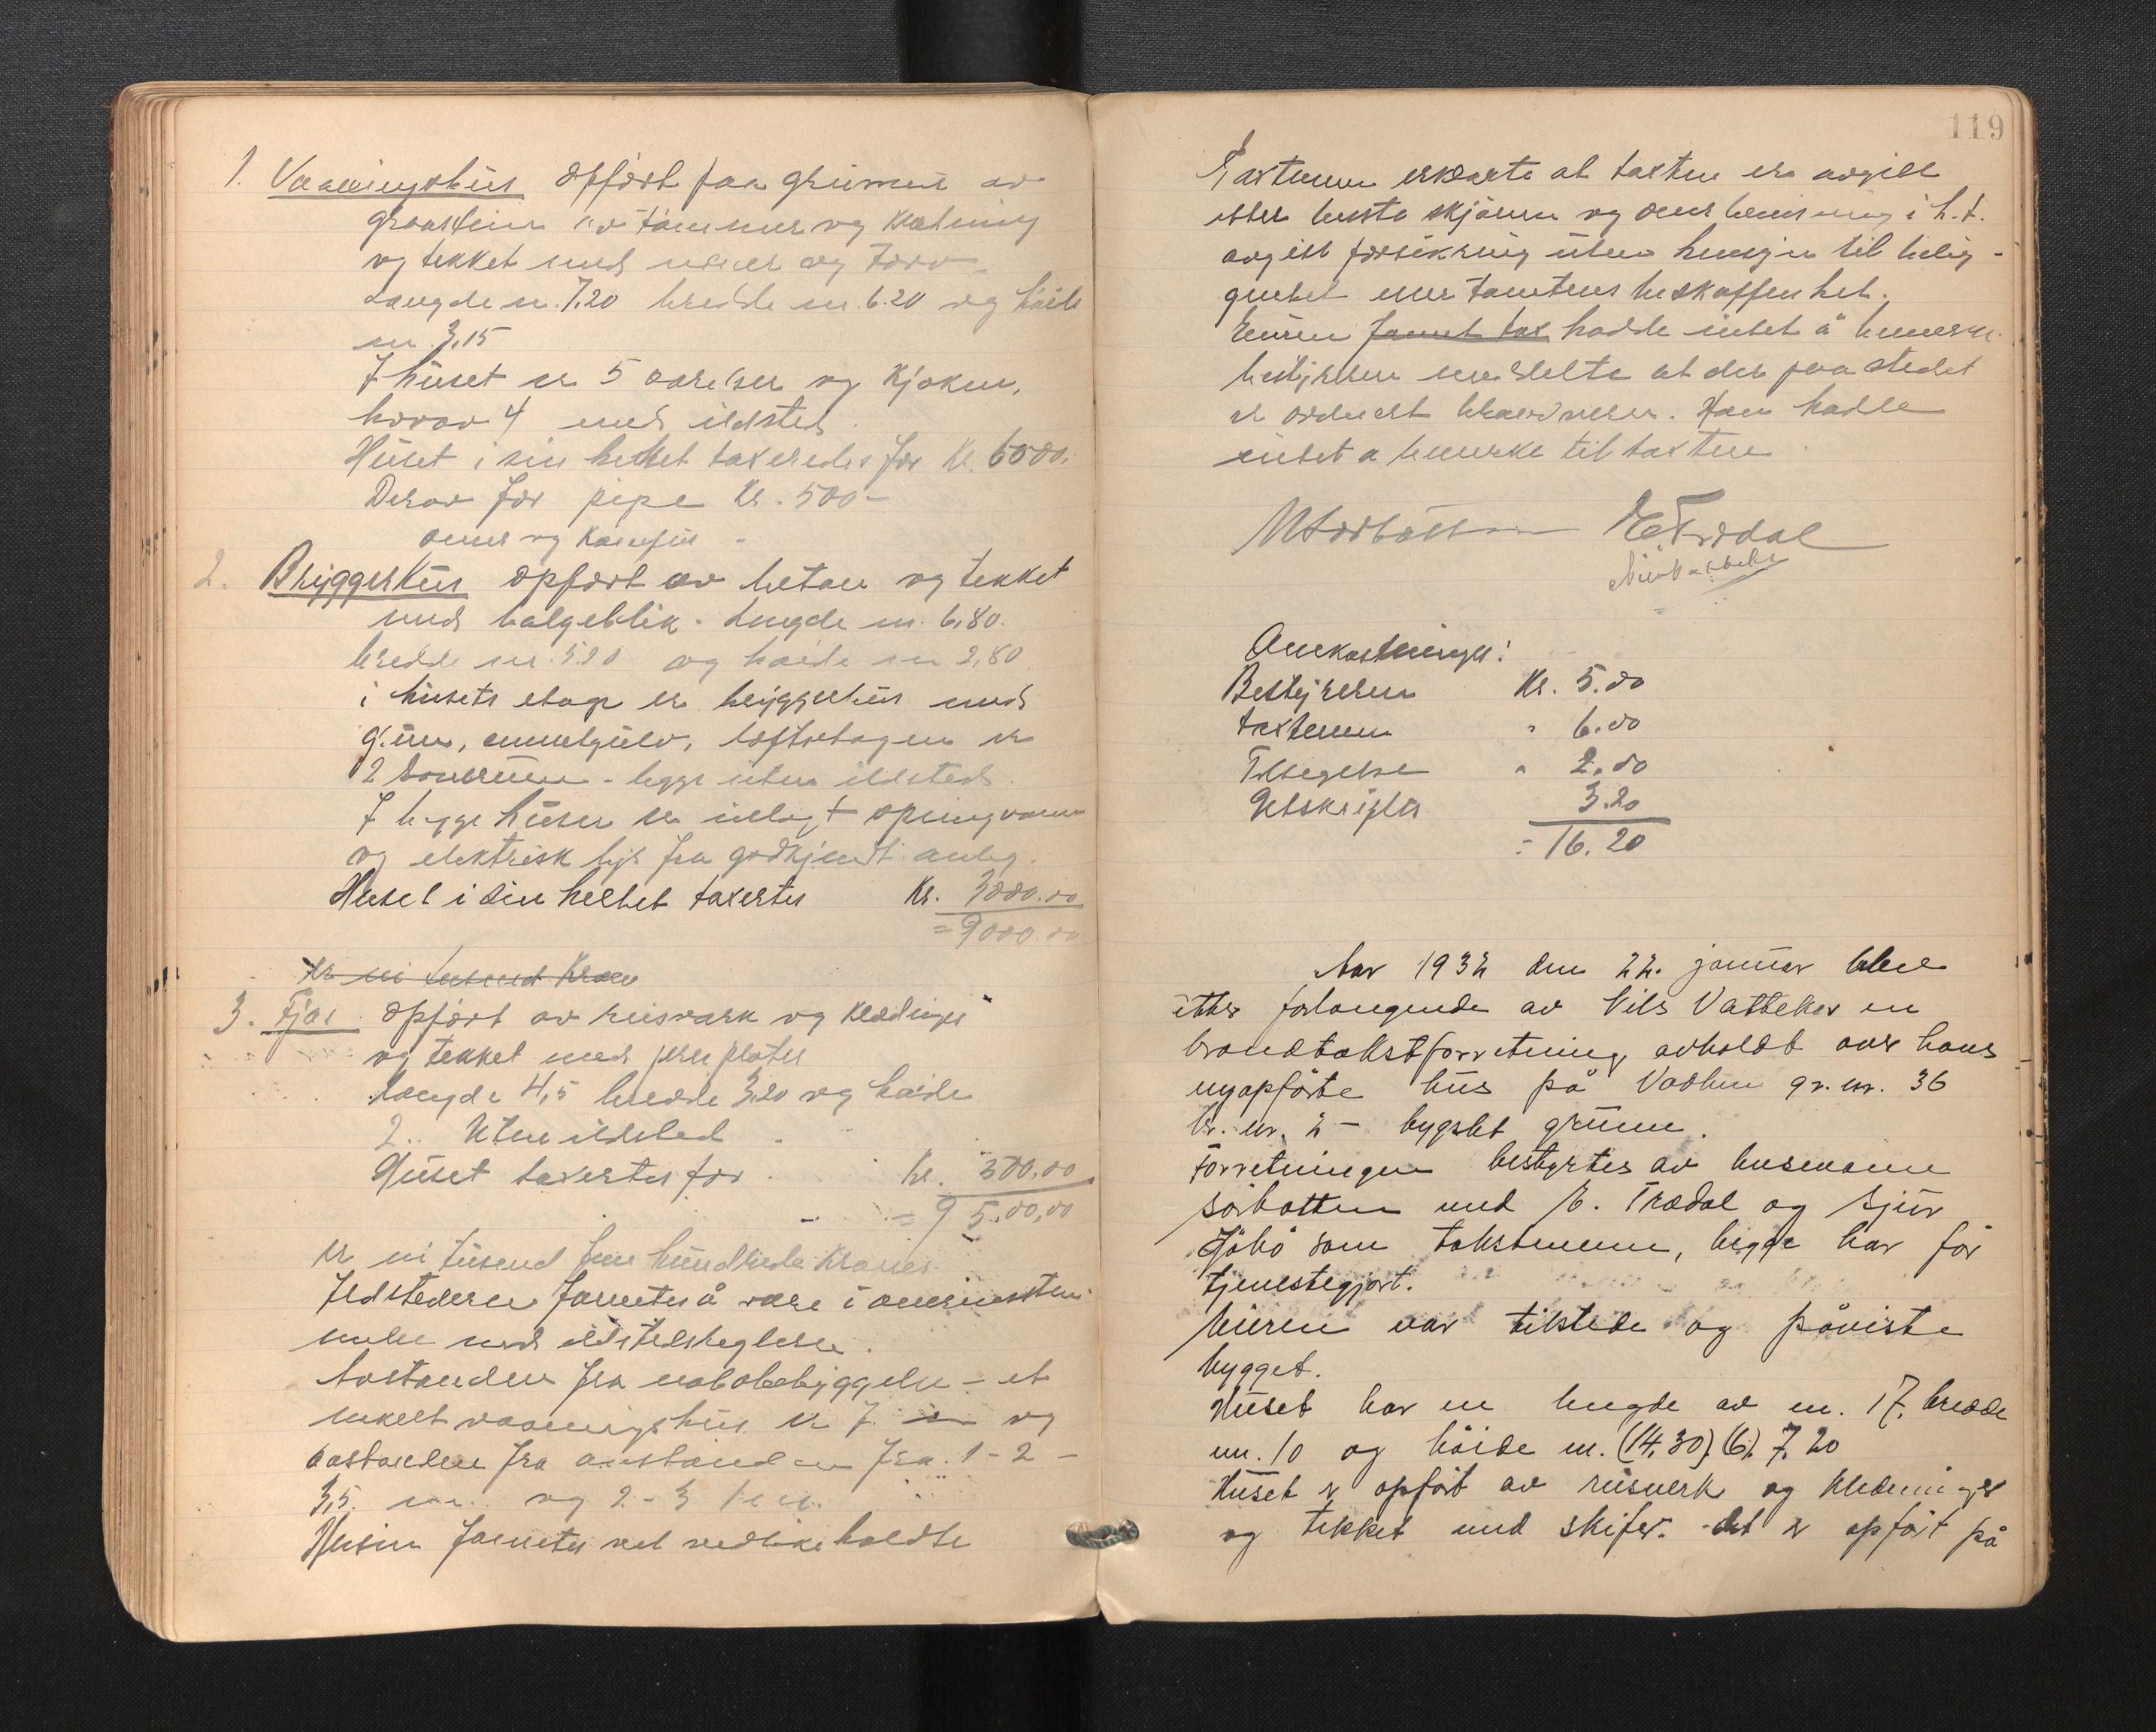 1. Vaaningshus opført paa grunmur av
graastein av tømmer og Kledning
og tekket med never og Torv.
Længde m. 7.20 bredde m. 6.20 og høide
m. 3,15
I huset er 5 værelser og Kjøken,
hvorav 4 med ildsted.
Huset i sin helhet taxeredes for Kr. 6000.
Derav for pipe Kr. 500-
ovner og Komfur
2. Bryggerhus opført av betong og tekket
med bølgeblik. Lengde m. 6,80.
bredde m. 5.20 og høide m 2,80.
i husets etage er bryggerhus med
grue, cementgulv, loftsetagen er
2 begge uten ildsted.
I begge huser er inlagt springvann
og elektrisk lys fra godkjendt anleg.
Huset i sin helhet taxertes Kr. 3000.00
= 9000.00
Kr ni tusend Kroner
3. Fjøs opført av reisverk og Kledninger
og tekket med jern plater
Længde 4,5 bredde 3,20 og høide
2.. Uten ildsted.
Huset taxertes for Kr. 500.00
= 9500,00
Kr ni tusend fem hundrede Kroner
Ildstederne fantes å være i overensstem-
melse med
Avstanden fra nabobebyggelse - et
enkelt vaaningshus er 7 m og
avstanden fra fra 1-2-
3,5. m. og 2-3
Husene fantes vel vedlikeholdte
119
Taxtmenn erklærte at taxten er avgitt
etter beste skjønn og overbevisning i h.t.
avgitt forsikring uten hensyn til belig-
genhet eller tomtens beskaffenhet.
Eieren fannt tax hadde intet å bemerke.
bestyreren meddelte at der paa stedet
er ordnert brandvesen. Han hadde
intet a bemerke til taxten.
E. Trædal
Omkostninger:
Bestyreren Kr. 5.00
taxtmenn " 6.00
Tilsigelse " 2.00
Utskrifter 3.20
= 16.20
Aar 1932 den 22. januar blev
etter forlangende av Nils Vattekar en
brandtakstforretning avholdt over hans
nyopførte hus på Vadheim gr. nr. 36
br. nr. 2 - bygslet grunn.
Forretningen bestyrtes av lensmann
Sørbotten med E. Trædal og Sjur
som takstmenn, begge har før
tjenestegjort.
Eieren var tilstede og påviste
bygget.
Huset har en lengde av m. 17, bredde
m. 10 og høide m. (14,30) (6). 7,20
Huset er opført av reisverk og Kledninger
og tekket med skifer. det er opført på